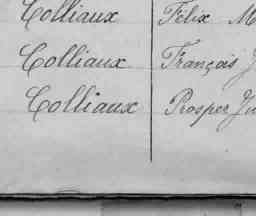 Colliaux Félix M
Colliaux François J
Colliaux Prosper Ju